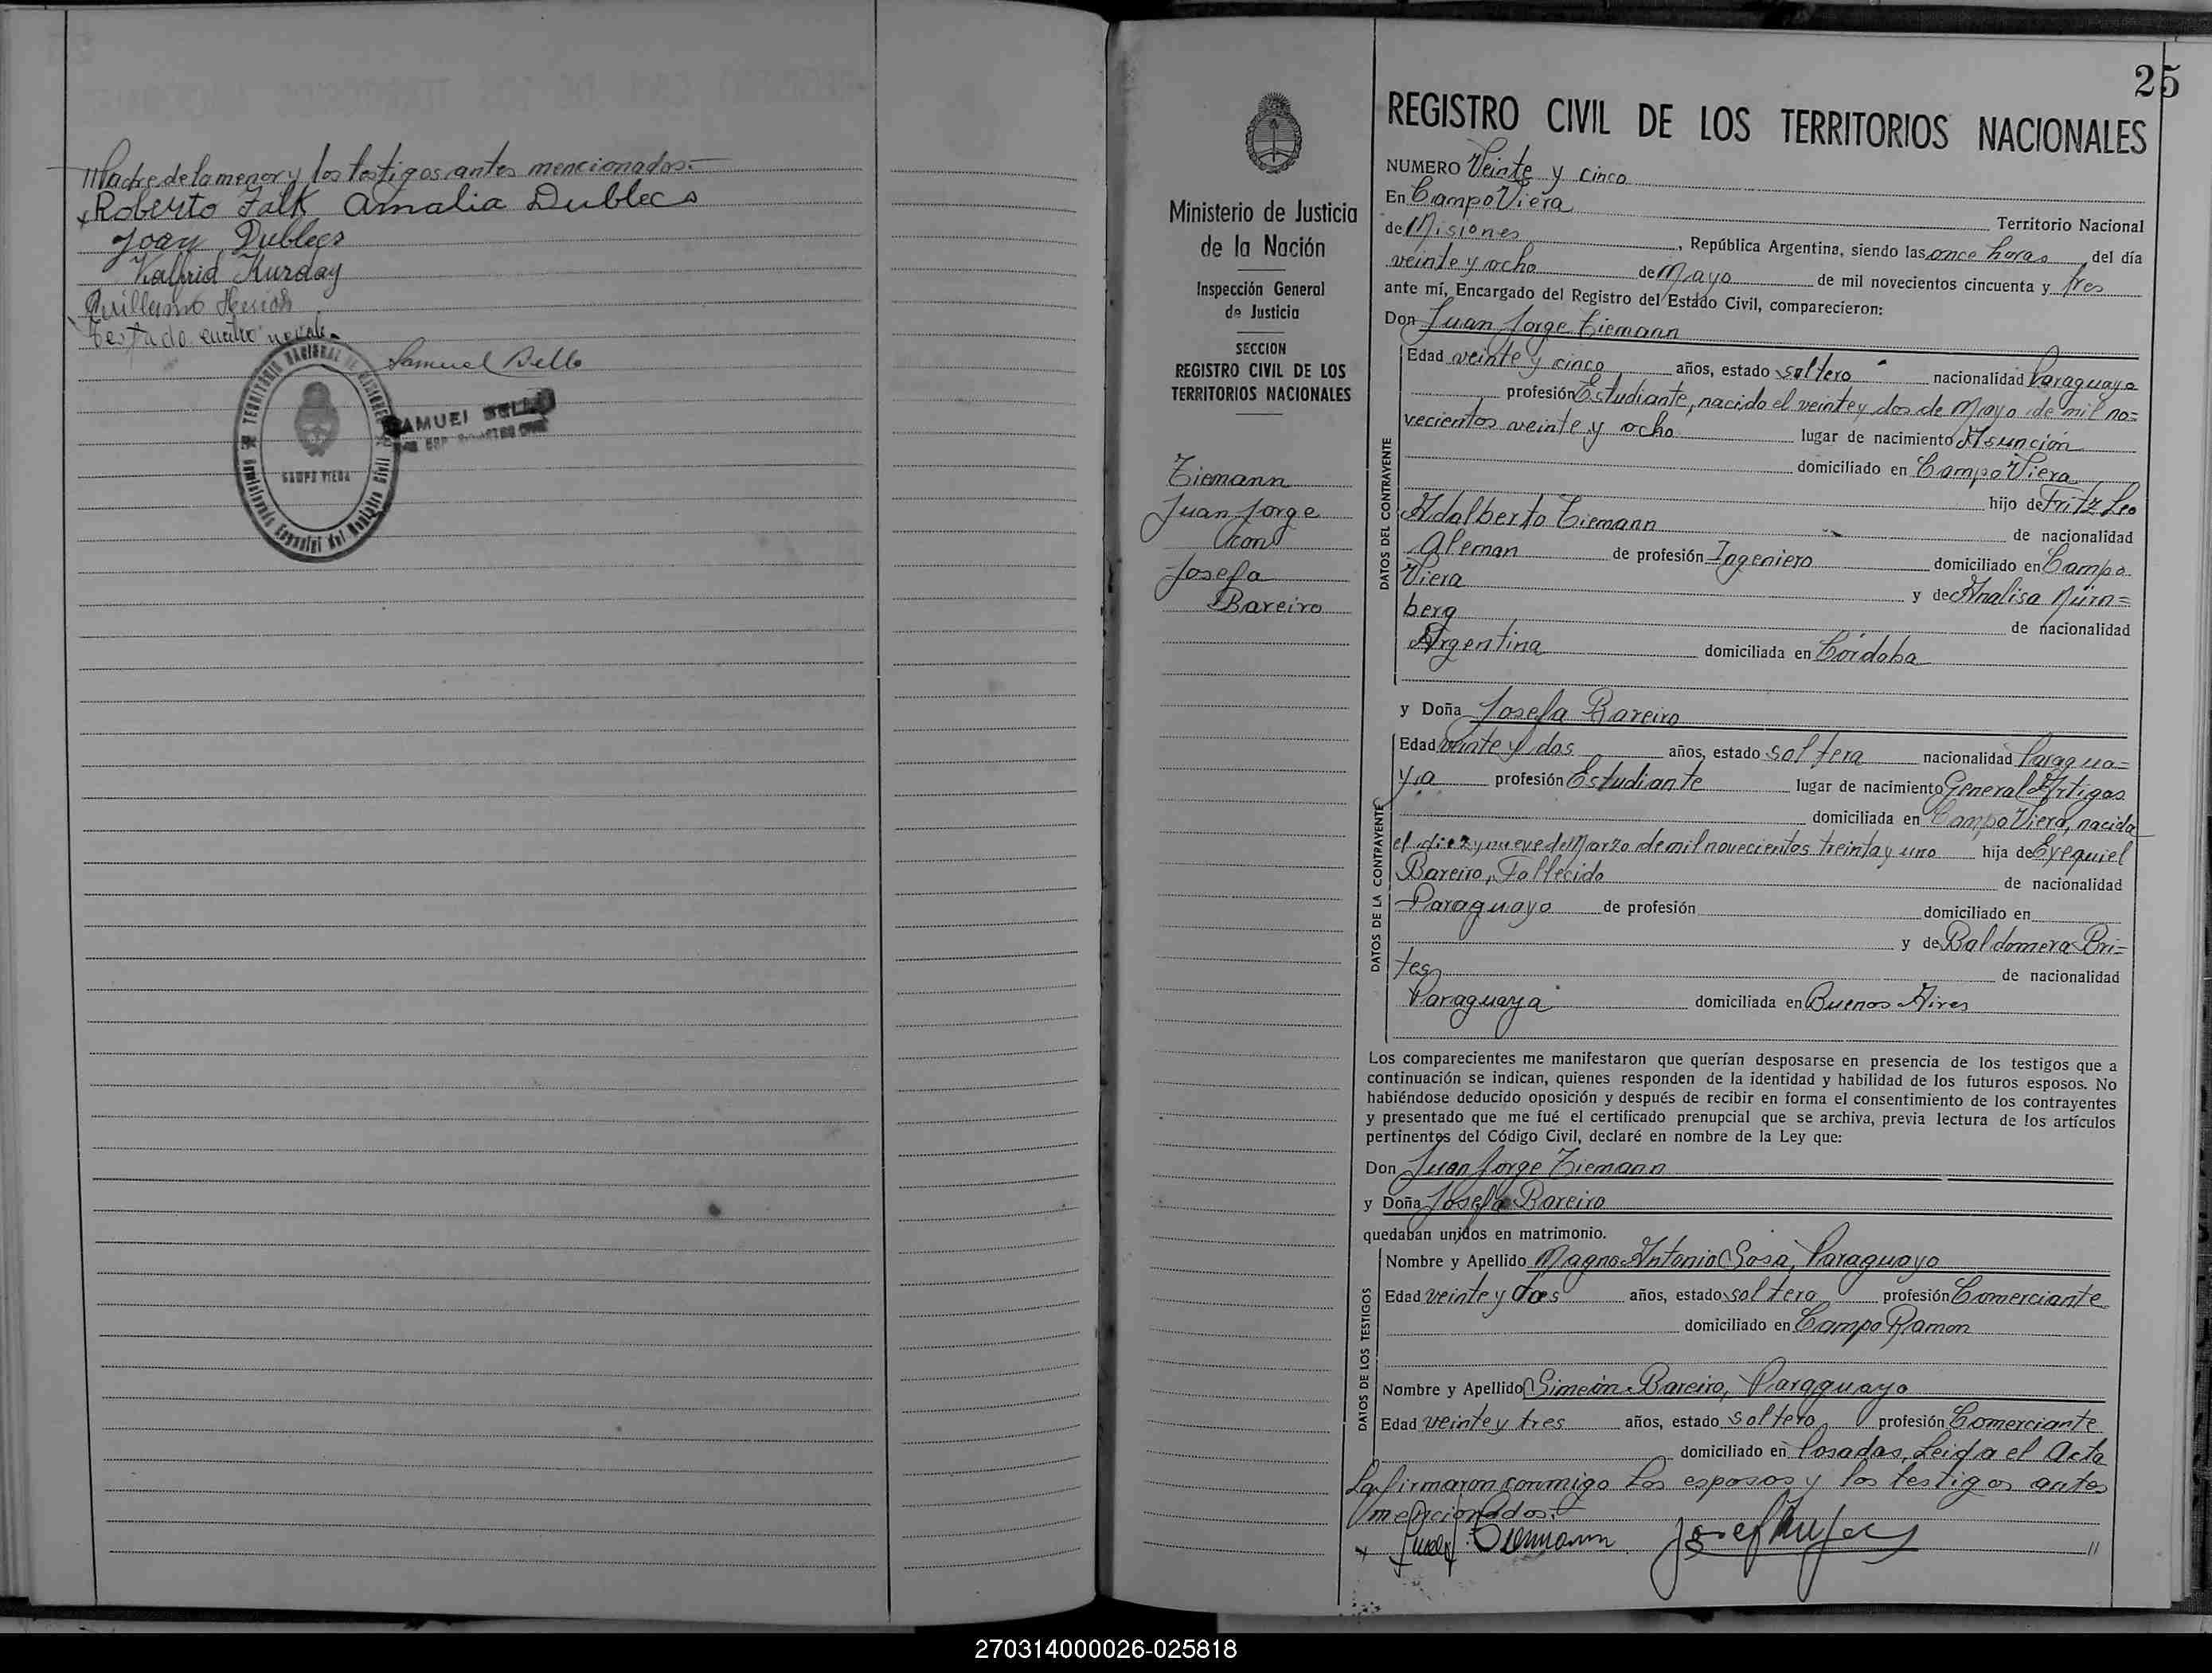 Madre de la menor y los testigos antes mencionados.-
Roberto Falk Amalia Dublecs
Joan Dublecs
Walfrid Kurday
Guillermo
testado cuatro
Samuel Dello
TERRITORIO NACIONAL DE MISIONES
CAMPO VIERA
Registro Civil
SAMUEL DELLO
25
Ministerio de Justicia
de la Nación
Inspección General
de Justicia
SECCION
REGISTRO CIVIL DE LOS
TERRITORIOS NACIONALES
Tiemann
Juan Jorge
con
Josefa
Bareiro
REGISTRO CIVIL DE LOS TERRITORIOS NACIONALES
NUMERO Veinte y cinco
En Campo Viera Territorio Nacional
de Misiones, República Argentina, siendo las once horas del día
veinte y ocho de Mayo de mil novecientos cincuenta y tres
ante mí, Encargado del Registro del Estado Civil, comparecieron:
Don Juan Jorge Tiemann
DATOS DEL CONTRAYENTE
Edad veinte y cinco años, estado soltero nacionalidad Paraguaya
profesión Estudiante, nacido el veinte y dos de Mayo de mil no=
vecientos veinte y ocho lugar de nacimiento Asunción
domiciliado en Campo Viera
hijo de Fritz Leo
Adalberto Tiemann de nacionalidad
Aleman de profesión Ingeniero domiciliado en Campo
Viera y de Analisa Nürn=
berg de nacionalidad
Argentina domiciliada en Córdoba
y Doña Josefa Bareiro
DATOS DE LA CONTRAYENTE
Edad veinte y dos años, estado soltera nacionalidad Paragua=
ya profesión Estudiante lugar de nacimiento General Artigas
domiciliada en Campo Viera, nacida
el diez y nueve de Marzo de mil novecientos treinta y uno hija de Exequiel
Bareiro, Fallecido de nacionalidad
Paraguayo de profesión domiciliado en
y de Baldomera Bri=
tes de nacionalidad
Paraguaya domiciliada en Buenos Aires
Los comparecientes me manifestaron que querían desposarse en presencia de los testigos que a
continuación se indican, quienes responden de la identidad y habilidad de los futuros esposos. No
habiéndose deducido oposición y después de recibir en forma el consentimiento de los contrayentes
y presentado que me fué el certificado prenupcial que se archiva, previa lectura de los artículos
pertinentes del Código Civil, declaré en nombre de la Ley que:
Don Juan Jorge Tiemann
y Doña Josefa Bareiro
quedaban unidos en matrimonio.
DATOS DE LOS TESTIGOS
Nombre y Apellido Magno Antonio Sosa, Paraguayo
Edad veinte y dos años, estado soltero profesión Comerciante
domiciliado en Campo Ramon
Nombre y Apellido Simeón Bareiro, Paraguayo
Edad veinte y tres años, estado soltero profesión Comerciante
domiciliado en Posadas, Leida el Acta
La firmaron conmigo los esposos y los testigos antes
mencionados.-
Tiemann
270314000026-025818